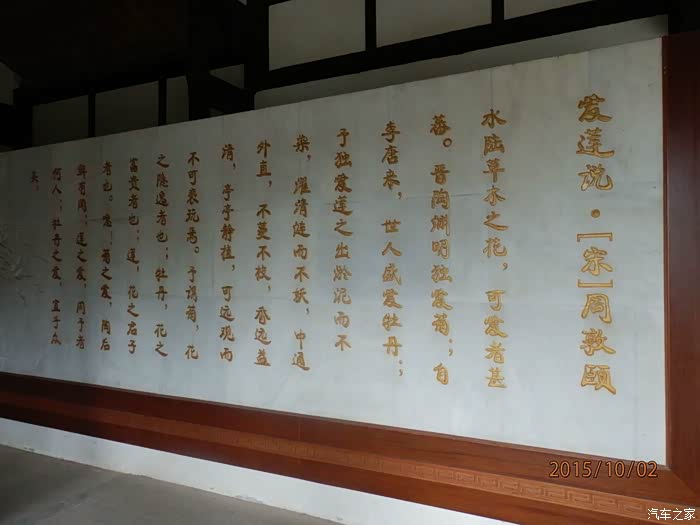 爱莲说·[宋]周敦颐
水陆草木之花，可爱者甚
蕃。晋陶渊明独爱菊；自
李唐来，世人盛爱牡丹。；
予独爱莲之出淤泥而不
染，濯清涟而不妖，中通
外直，不蔓不枝，香远益
清，亭亭静植，可远观而
不可亵玩焉。予谓菊，花
之隐逸者也；牡丹，花之
富贵者也；莲，花之君子
者也。噫！菊之爱，陶后
鲜有闻；莲之爱，同予者
何人；牡丹之爱，宜乎众
矣。
2015/10/02
汽车之家